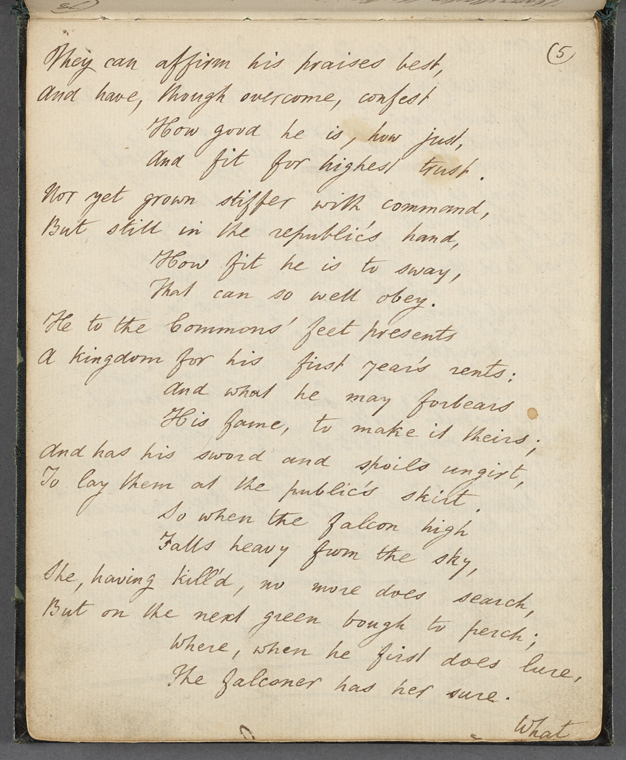 (5
They can affirm his praises best,
And have, though overcome, confest
How good he is, how just,
And fit for highest trust.
Nor yet grown stiffer with command,
But still in the republic's hand,
How fit he is to sway,
That can so well obey.
He to the Commons' feet presents
A kingdom for his first year's rents;
And what he may forbears
His fame, to make it theirs;
And has his sword and spoils ungirt,
To lay them at the public's skirt.
So when the falcon high
Falls heavy from the sky,
She, having kill'd, no more does search,
But on the next green bough to perch;
Where, when he first does lure,
The falconer has her sure.
What